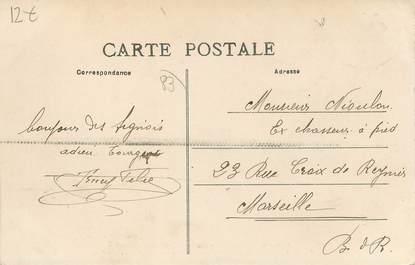 12€
CARTE POSTALE
Correspondance
Adresse
83
Bonjour des Signois
adieu
Monsieur Nioulou
Ex chasseur à pied
23 Rue Croix de Reynier
Marseille
B. d R.